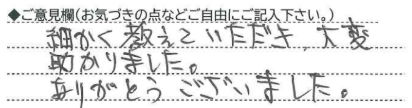 ◆ご意見欄(お気づきの点などご自由にご記入下さい。)
細かく教えていただき、大変
助かりました。
ありがとうございました。